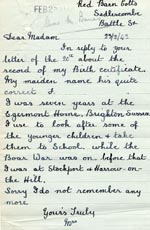 Red Barn Cotts
FEB 25
Sedlescombe
Battle Sx
23/2/62
Dear Madam
In reply to your
letter of the 20th about the
record of my Birth certificate.
My maiden name his quite
correct
I was seven years at the
Egermont Home, Brighton Sussex
I use to look after some of
the younger children & take
them to School, while the
Boar War was on. before that
I was at Stockport & Harrow-on
the Hill.
Sorry I do not remember any
more
Yours Truly
Mrs